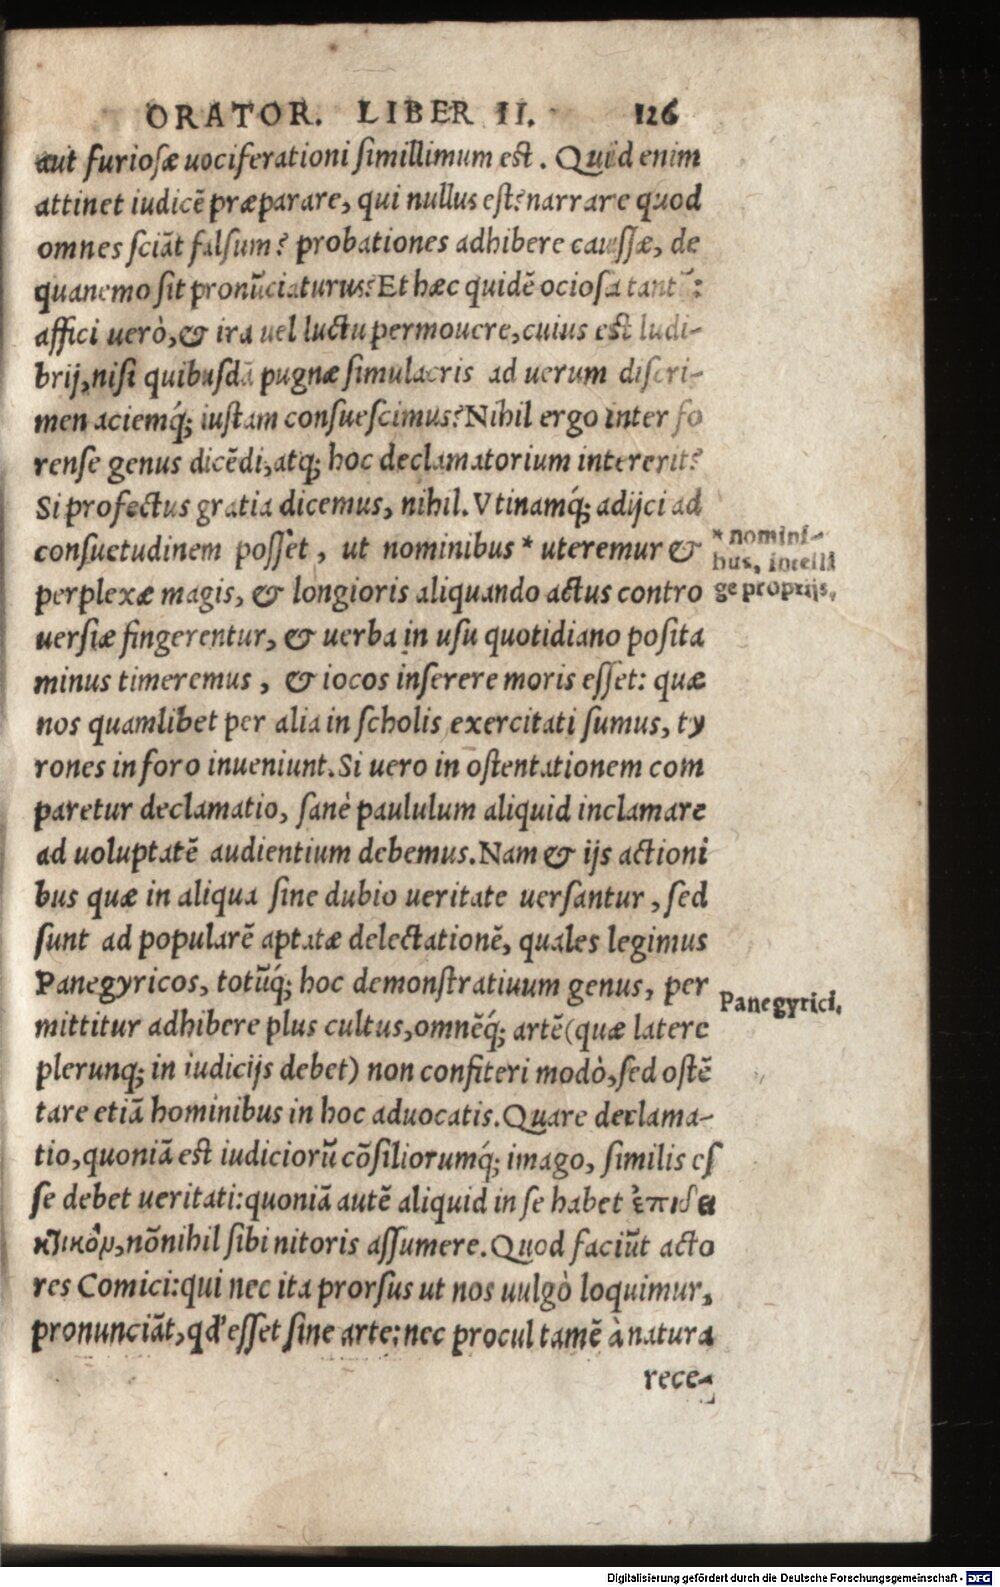 ORATOR. LIBER II. 126
aut furiosæ uociferationi simillimum est. Quid enim
attinet iudicẽ præparare, qui nullus est? narrare quod
omnes sciãt falsum? probationes adhibere caussæ, de
qua nemo sit pronũciaturus? Et hæc quidẽ ociosa tantũ:
affici uerò, & ira uel luctu permouere, cuius est ludi-
brij, nisi quibusdã pugnæ simulacris ad uerum discri-
men aciemq́; iustam consuescimus? Nihil ergo inter fo
rense genus dicẽdi, atq; hoc declamatorium intererit?
Si profectus gratia dicemus, nihil. Vtinamq́; adijci ad
consuetudinem posset, ut nominibus * uteremur &
* nomini-
bus, intelli
ge proprijs.
perplexæ magis, & longioris aliquando actus contro
uersiæ fingerentur, & uerba in usu quotidiano posita
minus timeremus, & iocos inserere moris esset: quæ
nos quamlibet per alia in scholis exercitati sumus, ty
rones in foro inueniunt. Si uero in ostentationem com
paretur declamatio, sanè paululum aliquid inclamare
ad uoluptatẽ audientium debemus. Nam & ijs actioni
bus quæ in aliqua sine dubio ueritate uersantur, sed
sunt ad popularẽ aptatæ delectationẽ, quales legimus
Panegyricos, totũq́; hoc demonstratiuum genus, per
Panegyrici.
mittitur adhibere plus cultus, omnẽq́; artẽ (quæ latere
plerunq; in iudicijs debet) non confiteri modò, sed ostẽ
tare etiã hominibus in hoc aduocatis. Quare declama-
tio, quoniã est iudiciorũ cõsiliorumq́; imago, similis es
se debet ueritati: quoniã autẽ aliquid in se habet ἐπιδει
κτικὸν, nõnihil sibi nitoris assumere. Quod faciũt acto
res Comici: qui nec ita prorsus ut nos uulgò loquimur,
pronunciãt, qd' esset sine arte: nec procul tamẽ à natura
rece-
Digitalisierung gefördert durch die Deutsche Forschungsgemeinschaft - DFG